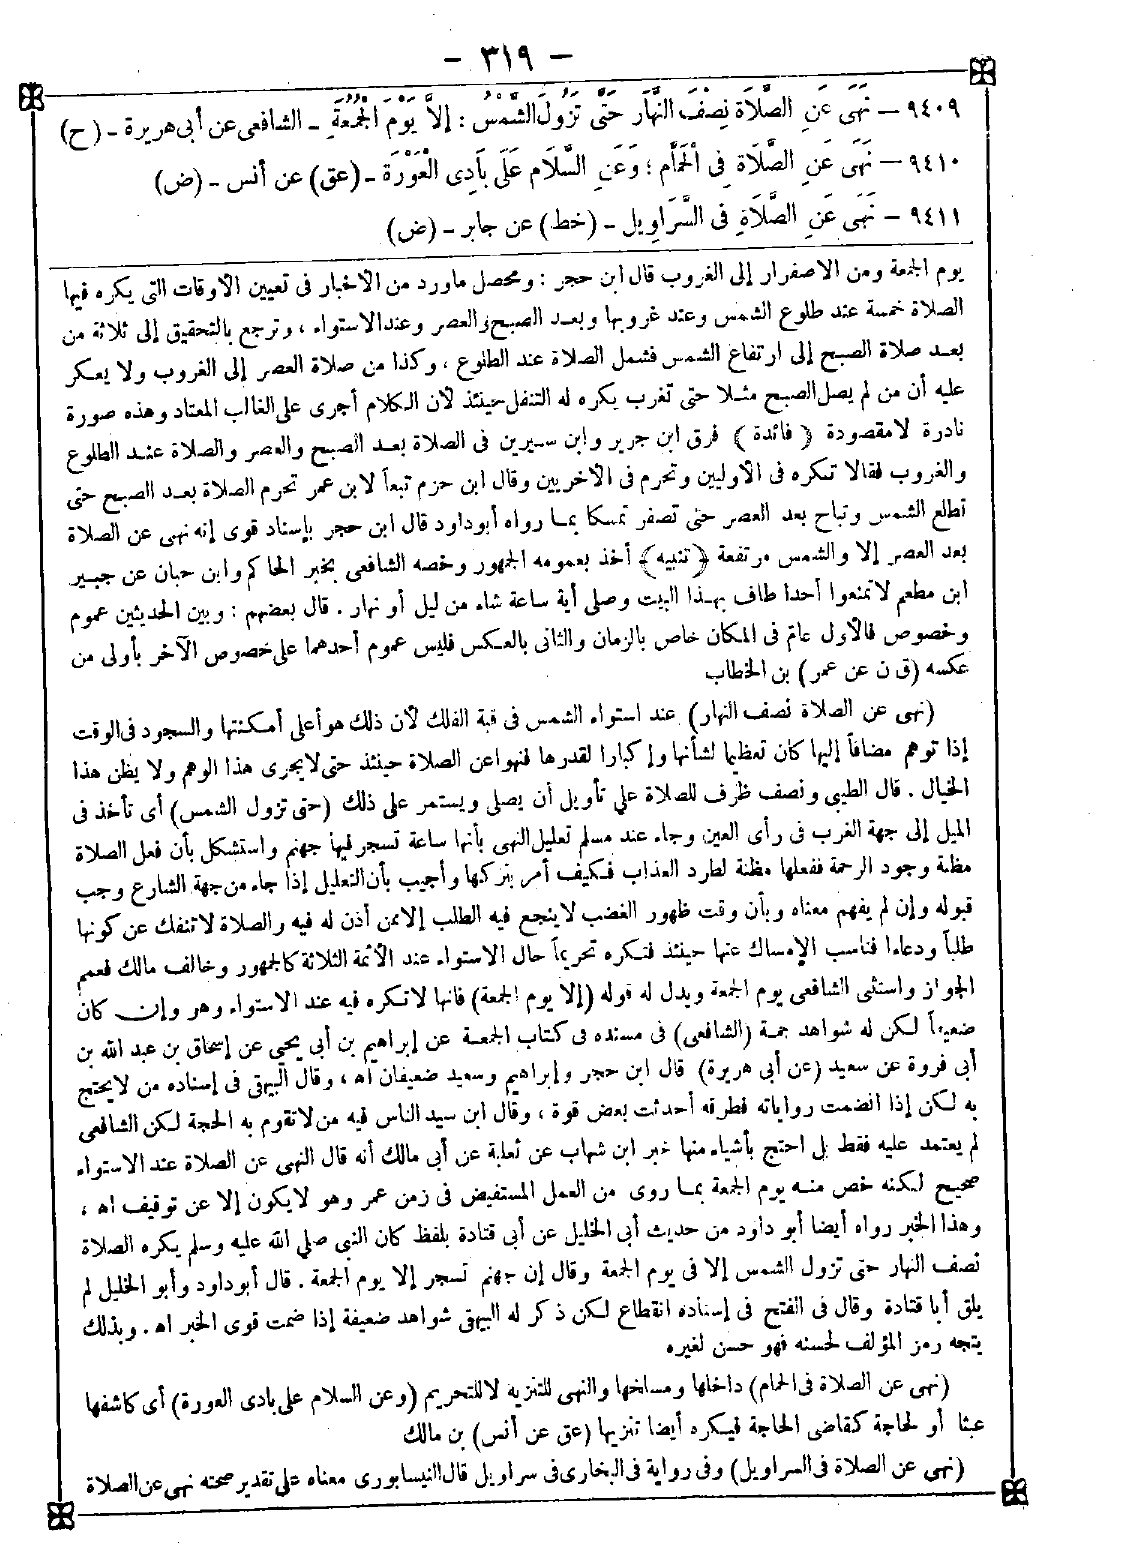 — ٣١٩ —
٩٤٠٩ — نَهَى عَنِ الصَّلَاةِ نِصْفَ النَّهَارِ حَتَّى تَزُولَ الشَّمْسُ : إِلَّا يَوْمَ الْجُمُعَةِ - الشافعى عن أبى هريرة - (ح)
٩٤١٠ — نَهَى عَنِ الصَّلَاةِ فِى الْحَمَّامِ ؛ وَعَنِ السَّلَامِ عَلَى بَادِى الْعَوْرَةِ - (عق) عن أنس - (ض)
٩٤١١ - نَهَى عَنِ الصَّلَاةِ فى السَّرَاوِيلِ - (خط) عن جابر - (ض)
يوم الجمعة ومن الاصفرار إلى الغروب قال ابن حجر : ومحصل ماورد من الأخبار فى تعيين الأوقات التى يكره فيها
الصلاة خمسة عند طلوع الشمس وعند غروبها وبعد الصبح والعصر وعند الاستواء ، وترجع بالتحقيق إلى ثلاثة من
بعد صلاة الصبح إلى ارتفاع الشمس فشمل الصلاة عند الطلوع ، وكذا من صلاة العصر إلى الغروب ولا يعكر
عليه أن من لم يصل الصبح مثلا حتى تغرب يكره له التنفل حينئذ لأن الكلام أجرى على الغالب المعتاد وهذه صورة
نادرة لامقصودة ﴿ فائدة ﴾ فرق ابن جرير وابن سيرين فى الصلاة بعد الصبح والعصر والصلاة عند الطلوع
والغروب فقالا تكره فى الأوليين وتحرم فى الأخريين وقال ابن حزم تبعاً لابن عمر تحرم الصلاة بعد الصبح حتى
تطلع الشمس وتباح بعد العصر حتى تصفر تمسكا بما رواه أبوداود قال ابن حجر بإسناد قوى إنه نهى عن الصلاة
بعد العصر إلا والشمس مرتفعة ﴿ تنبيه ﴾ أخذ بعمومه الجمهور وخصه الشافعى بخبر الحاكم وابن حبان عن جبير
ابن مطعم لاتمنعوا أحدا طاف بهذا البيت وصلى أية ساعة شاء من ليل أو نهار . قال بعضهم : وبين الحديثين عموم
وخصوص فالأول عام فى المكان خاص بالزمان والثانى بالعكس فليس عموم أحدهما على خصوص الآخر بأولى من
عكسه (ق ن عن عمر) بن الخطاب
(نهى عن الصلاة نصف النهار) عند استواء الشمس فى قبة الفلك لأن ذلك هو أعلى أمكنتها والسجود فى الوقت
إذا توهم مضافاً إليها كان تعظيما لشأنها وإكبارا لقدرها فنهوا عن الصلاة حينئذ حتى لايجرى هذا الوهم ولا يظن هذا
الخيال . قال الطيبى ونصف ظرف للصلاة على تأويل أن يصلى ويستمر على ذلك (حتى تزول الشمس) أى تأخذ فى
الميل إلى جهة الغرب فى رأى العين وجاء عند مسلم تعليل النهى بأنها ساعة تسجر فيها جهنم واستشكل بأن فعل الصلاة
مظنة وجود الرحمة ففعلها مظنة لطرد العذاب فكيف أمر بتركها وأجيب بأن التعليل إذا جاء من جهة الشارع وجب
قبوله وإن لم يفهم معناه وبأن وقت ظهور الغضب لاينجع فيه الطلب إلا ممن أذن له فيه والصلاة لاتنفك عن كونها
طلباً ودعاءا فناسب الإمساك عنها حينئذ فتكره تحريماً حال الاستواء عند الأئمة الثلاثة كالجمهور وخالف مالك فعمم
الجواز واستثنى الشافعى يوم الجمعة ويدل له قوله (إلا يوم الجمعة) فانها لاتكره فيه عند الاستواء وهو وإن كان
ضعيفاً لكن له شواهد جمة (الشافعى) فى مسنده فى كتاب الجمعة عن إبراهيم بن أبى يحيى عن إسحاق بن عبد الله بن
أبى فروة عن سعيد (عن أبى هريرة) قال ابن حجر وإبراهيم وسعيد ضعيفان اه ، وقال البيهقى فى إسناده من لايحتج
به لكن إذا انضمت رواياته فطرقه أحدثت بعض قوة ، وقال ابن سيد الناس فيه من لاتقوم به الحجة لكن الشافعى
لم يعتمد عليه فقط بل احتج بأشياء منها خبر ابن شهاب عن ثعلبة عن أبى مالك أنه قال النهى عن الصلاة عند الاستواء
صحيح لكنه خص منه يوم الجمعة بما روى من العمل المستفيض فى زمن عمر وهو لايكون إلا عن توقيف اه ،
وهذا الخبر رواه أيضا أبو داود من حديث أبى الخليل عن أبى قتادة بلفظ كان النبى صلى الله عليه وسلم يكره الصلاة
نصف النهار حتى تزول الشمس إلا فى يوم الجمعة وقال إن جهنم تسجر إلا يوم الجمعة . قال أبوداود وأبو الخليل لم
يلق أبا قتادة وقال فى الفتح فى إسناده انقطاع لكن ذكر له البيهقى شواهد ضعيفة إذا ضمت قوى الخبر اه . وبذلك
يتجه رمز المؤلف لحسنه فهو حسن لغيره
(نهى عن الصلاة فى الحمام) داخلها ومسلخها والنهى للتنزيه لا للتحريم (وعن السلام على بادى العورة) أى كاشفها
عبثا أو لحاجة كقاضى الحاجة فيكره أيضا تنزيها (عق عن أنس) بن مالك
(نهى عن الصلاة فى السراويل) وفى رواية فى البخارى فى سراويل قال النيسابورى معناه على تقدير صحته نهى عن الصلاة